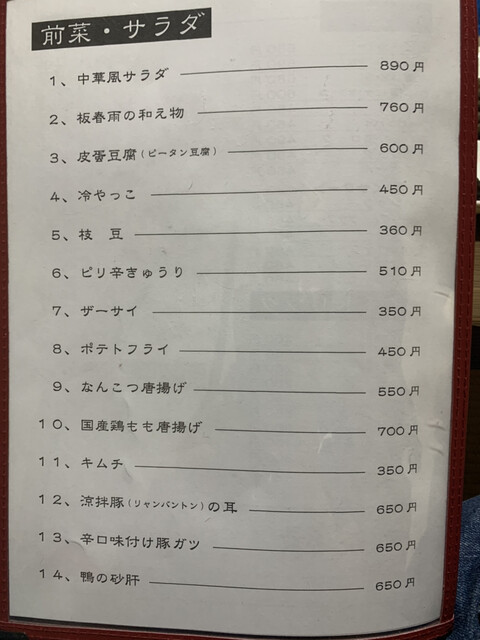 前菜・サラダ
1、中華風サラダ 890円
2、板春雨の和え物 760円
3、皮蛋豆腐(ピータン豆腐) 600円
4、冷やっこ 450円
5、枝 豆 360円
6、ピリ辛きゅうり 510円
7、ザーサイ 350円
8、ポテトフライ 450円
9、なんこつ唐揚げ 550円
10、国産鶏もも唐揚げ 700円
11、キムチ 350円
12、涼拌豚(リャンバントン)の耳 650円
13、辛口味付け豚ガツ 650円
14、鴨の砂肝 650円